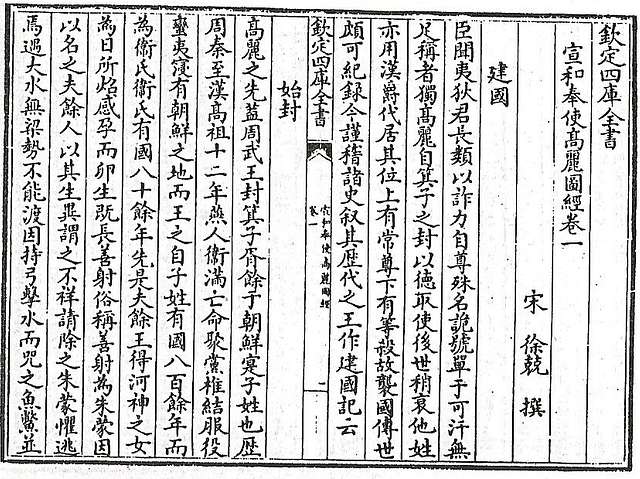 欽定四庫全書
宣和奉使高麗圖經卷一
宋 徐兢 撰
建國
臣聞夷狄君長類以詐力自尊殊名詭號單于可汗無
足稱者獨高麗自箕子之封以德取使後世稍衰他姓
亦用漢爵代居其位上有常尊下有等殺故襲國傳世
頗可紀錄今謹稽諸史叙其歴代之王作建國記云
欽定四庫全書
宣和奉使高麗圖經
卷一
一
始封
高麗之先葢周武王封箕子胥餘于朝鮮寔子姓也歴
周秦至漢高祖十二年燕人衞滿亡命聚黨椎結服役
蠻夷寖有朝鮮之地而王之自子姓有國八百餘年而
為衞氏衞氏有國八十餘年先是夫餘王得河神之女
為日所炤感孕而卵生既長善射俗稱善射為朱蒙因
以名之夫餘人以其生異謂之不祥請除之朱蒙懼逃
焉遇大水無梁勢不能渡因持弓擊水而咒之魚鼈並